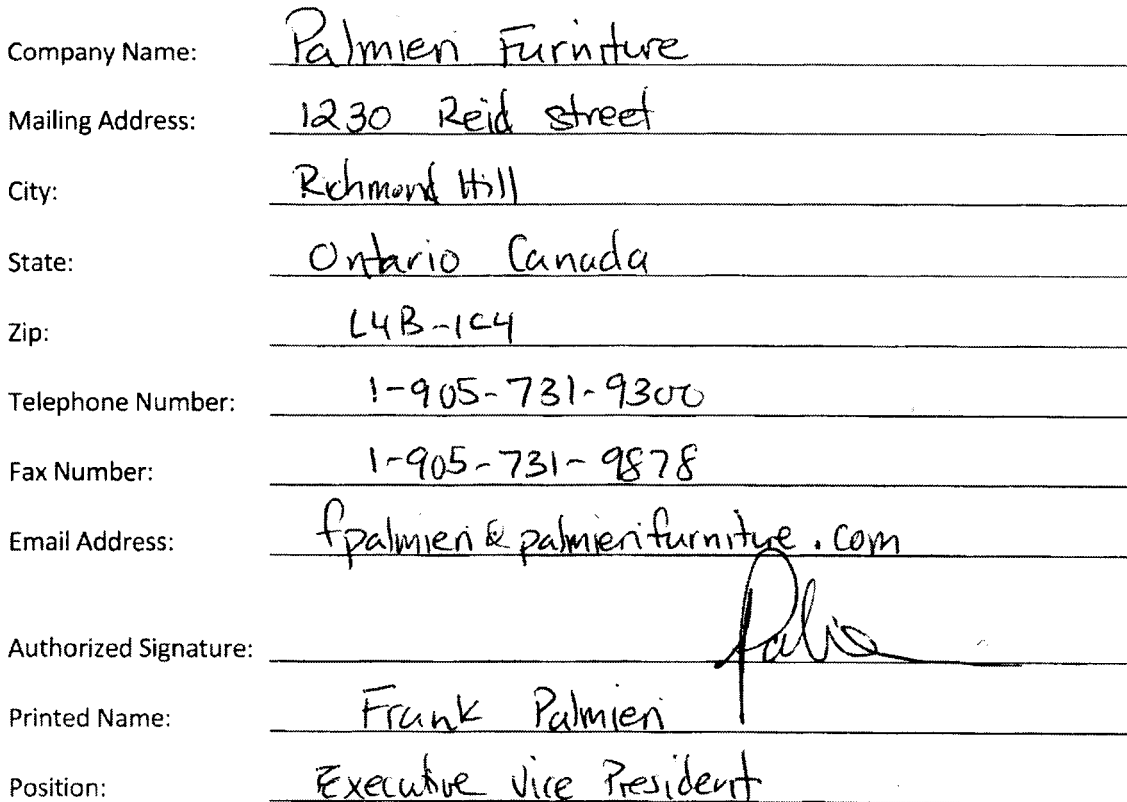 Company Name: Palmieri Furniture
Mailing Address: 1230 Reid street
City: Richmond Hill
State: Ontario Canada
Zip: L4B-1C4
Telephone Number: 1-905-731-9300
Fax Number: 1-905-731-9878
Email Address: fpalmieri@palmierifurniture.com
Authorized Signature:
Printed Name: Frank Palmieri
Position: Executive Vice President